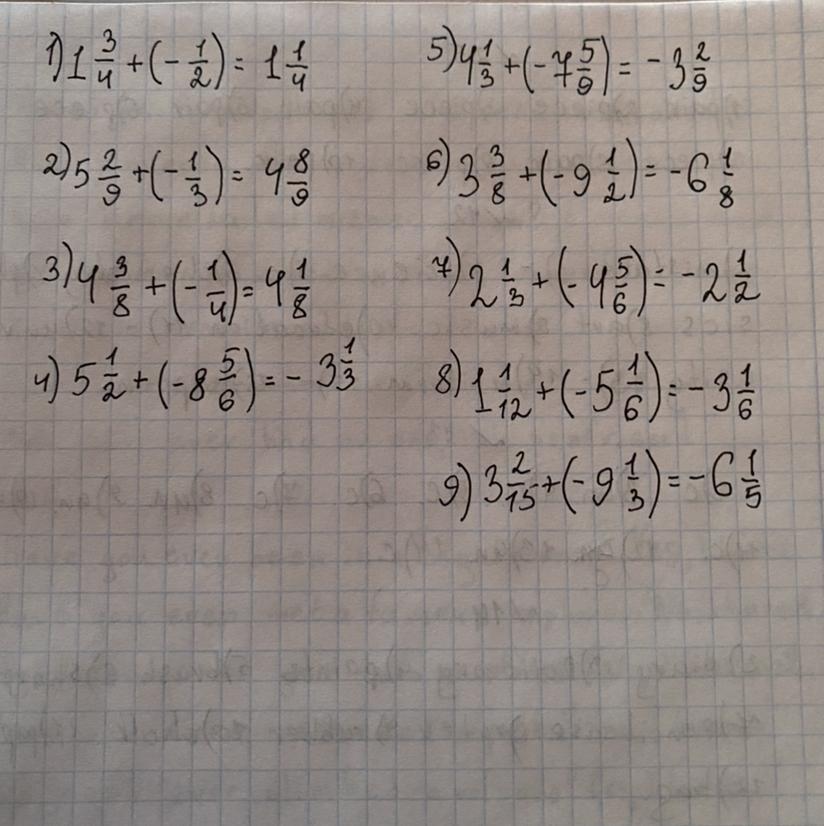 1) 1 3/4 + (- 1/2) = 1 1/4
2) 5 2/9 + (- 1/3) = 4 8/9
3) 4 3/8 + (- 1/4) = 4 1/8
4) 5 1/2 + (-8 5/6) = - 3 1/3
5) 4 1/3 + (-7 5/9) = - 3 2/9
6) 3 3/8 + (-9 1/2) = -6 1/8
7) 2 1/3 + (-4 5/6) = -2 1/2
8) 1 1/12 + (-5 1/6) = -3 1/6
9) 3 2/15 + (-9 1/3) = -6 1/5